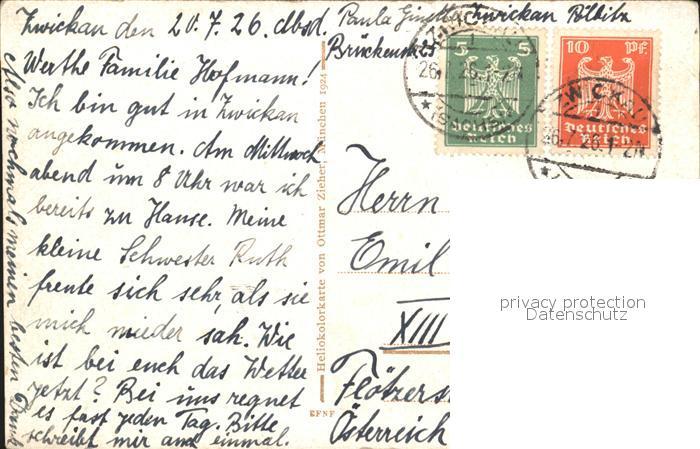 Zwickau den 20.7.26. abd.
Werthe Familie Hofmann!
Ich bin gut in Zwickau
angekommen. Am Mittwoch
abend um 8 Uhr war ich
bereits zu Hause. Meine
kleine Schwester Ruth
freute sich sehr, als sie
mich wieder sah. Wie
ist bei euch das Wetter
jetzt? Bei uns regnet
es fast jeden Tag. Bitte
schreibt mir auch einmal.
Also nochmals meinen besten Dank
Paula Zwickau Pölbitz
Heliokolorkarte von Ottmar Zieher, München 1924
EFNF
5 5
Deutsches
Reich
10 Pf.
Deutsches
Reich
Herrn
Emil
XIII
Flötzers
Österreich
privacy protection
Datenschutz